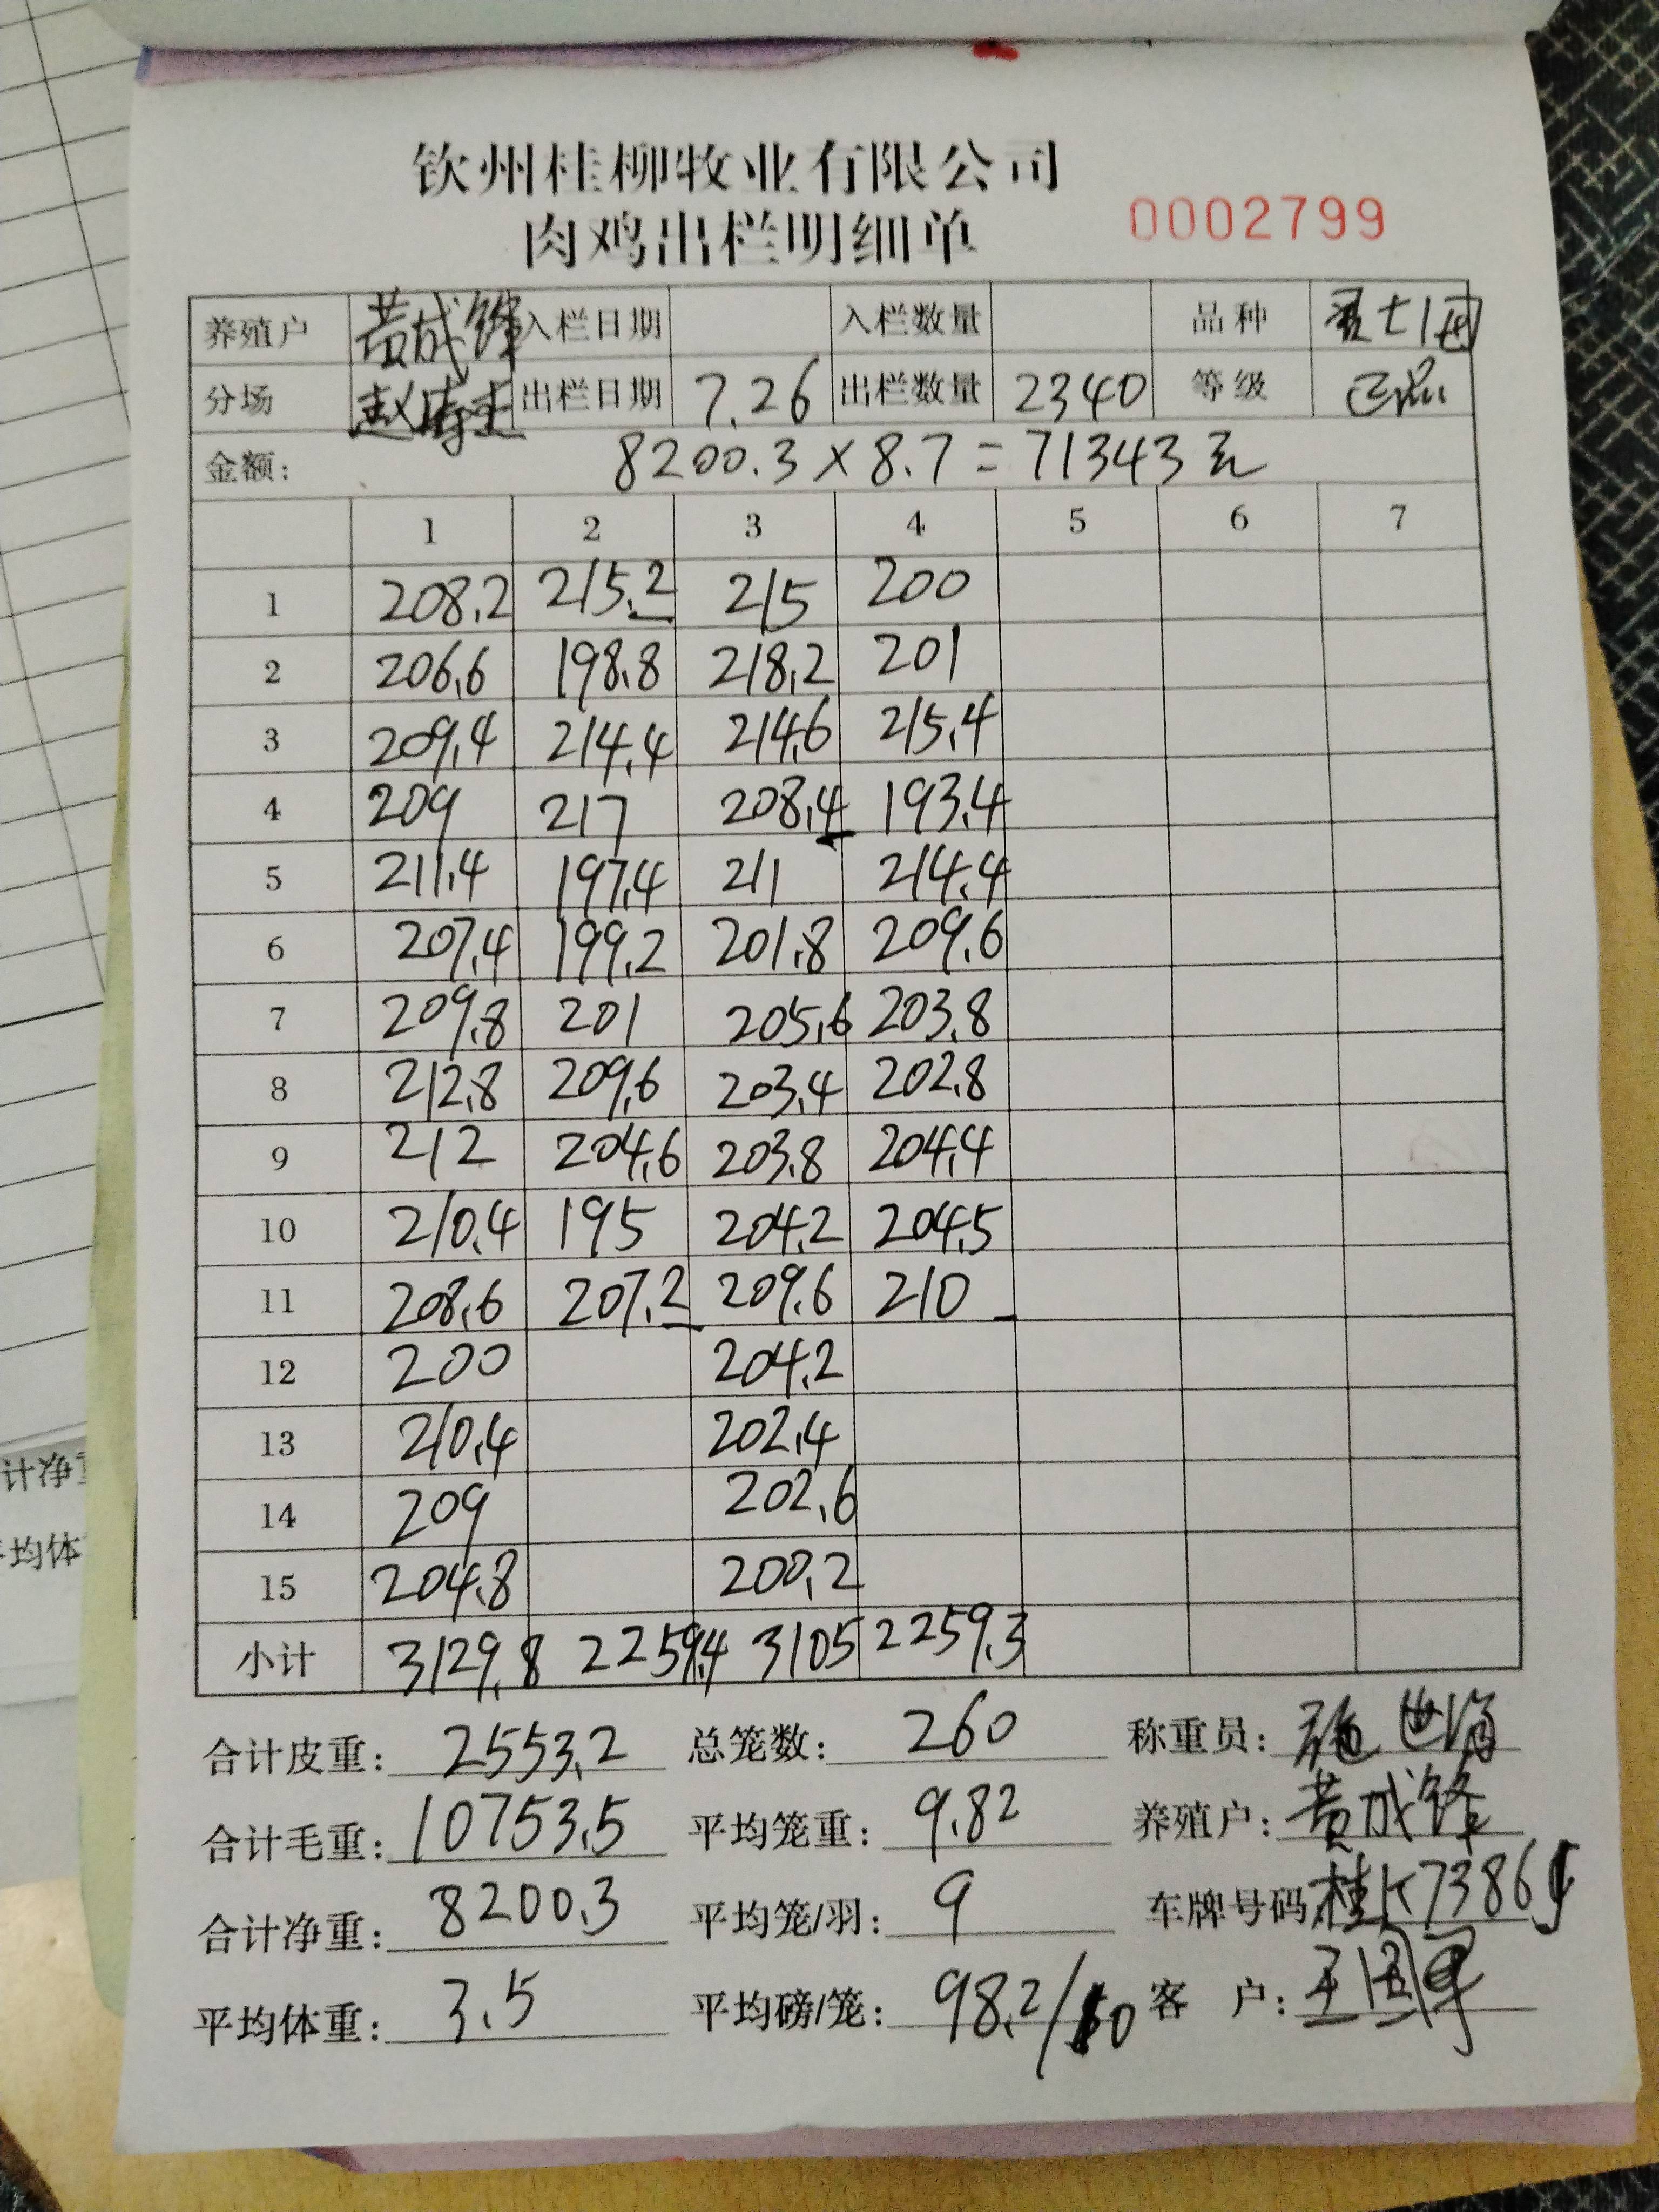 钦州桂柳牧业有限公司
肉鸡出栏明细单 0002799
养殖户 黄成锋 入栏日期 入栏数量 品种
分场 出栏日期 7.26 出栏数量 2340 等级 正品
金额: 8200.3×8.7=71343元
1 2 3 4 5 6 7
1 208.2 215.2 215 200
2 206.6 198.8 218.2 201
3 209.4 214.4 214.6 215.4
4 209 217 208.4 193.4
5 211.4 197.4 211 214.4
6 207.4 199.2 201.8 209.6
7 209.8 201 205.6 203.8
8 212.8 209.6 203.4 202.8
9 212 204.6 203.8 204.4
10 210.4 195 204.2 204.5
11 208.6 207.2 209.6 210
12 200 204.2
13 210.4 202.4
14 209 202.6
15 204.8 200.2
小计 3129.8 2259.4 3105 2259.3
合计皮重: 2553.2 总笼数: 260 称重员:
合计毛重: 10753.5 平均笼重: 9.82 养殖户: 黄成锋
合计净重: 8200.3 平均笼/羽: 9 车牌号码 桂K7386
平均体重: 3.5 平均磅/笼: 98.2/ 客 户: 王国军
计净重
平均体